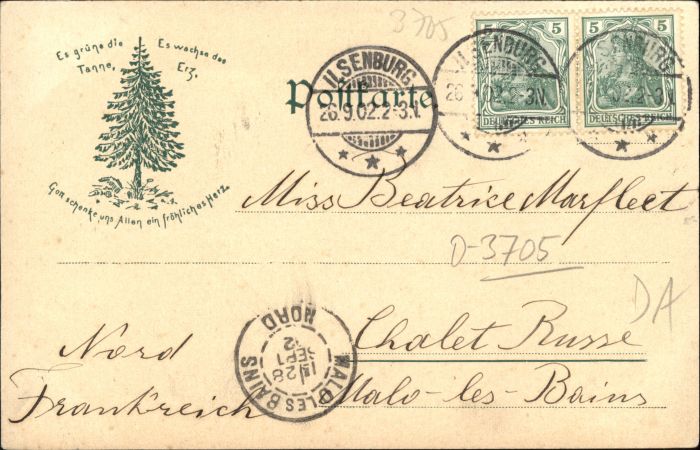 B 3705
Es grüne die Tanne,
Es wachse das Erz.
Gott schenke uns Allen ein fröhliches Herz.
Postkarte
ILSENBURG
26.9.02.2-3N.
ILSENBURG
26.9.02.2-3N.
ILSENBURG
5 5
DEUTSCHES REICH
5 5
DEUTSCHES REICH
Miss Beatrice Marfleet
D-3705
DA
Chalet Russe
Malo-les-Bains
Nord
Frankreich
MALO LES BAINS
28
SEPT
02
NORD